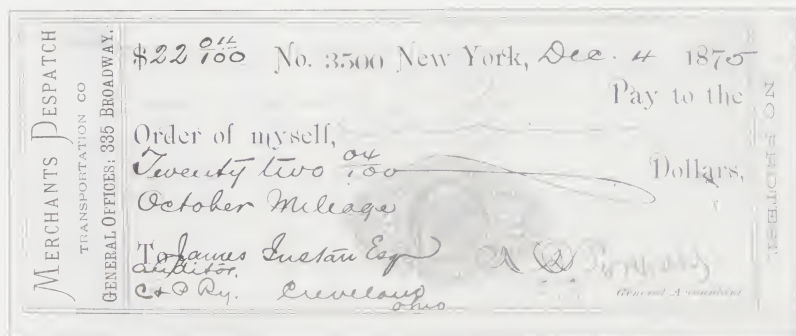 MERCHANTS DESPATCH
TRANSPORTATION CO
GENERAL OFFICES: 335 BROADWAY.
$22 04/100 No. 3500 New York, Dec. 4 1875
Pay to the
Order of myself,
Twenty two 04/100 Dollars,
October Mileage
To James Esq
auditor.
C & P Ry. Cleveland
Ohio
General Accountant
NO PROTEST.